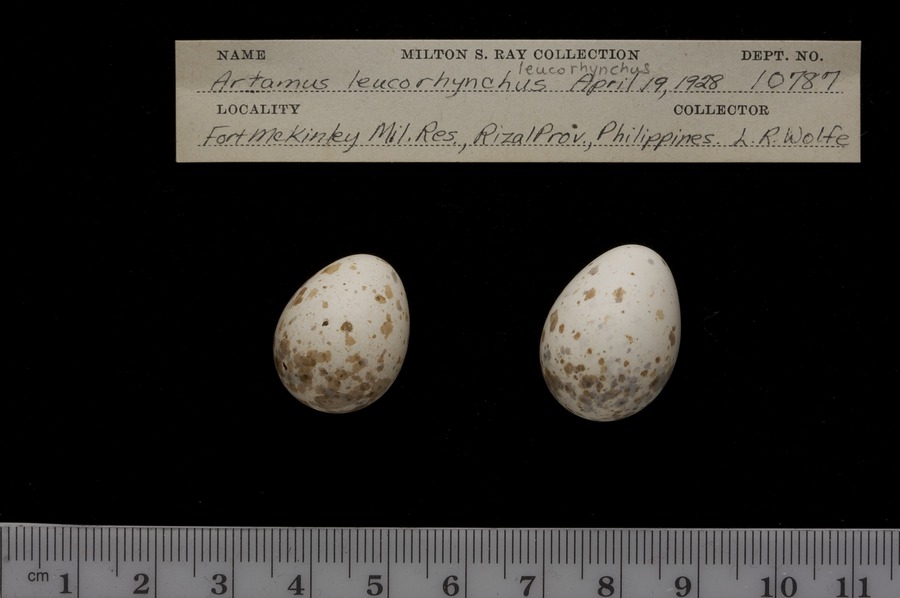 NAME MILTON S. RAY COLLECTION DEPT. NO.
leucorhynchus
Artamus leucorhynchus April 19, 1928 10787
LOCALITY COLLECTOR
Fort McKinley Mil. Res., Rizal Prov., Philippines. L. R. Wolfe
cm 1 2 3 4 5 6 7 8 9 10 11